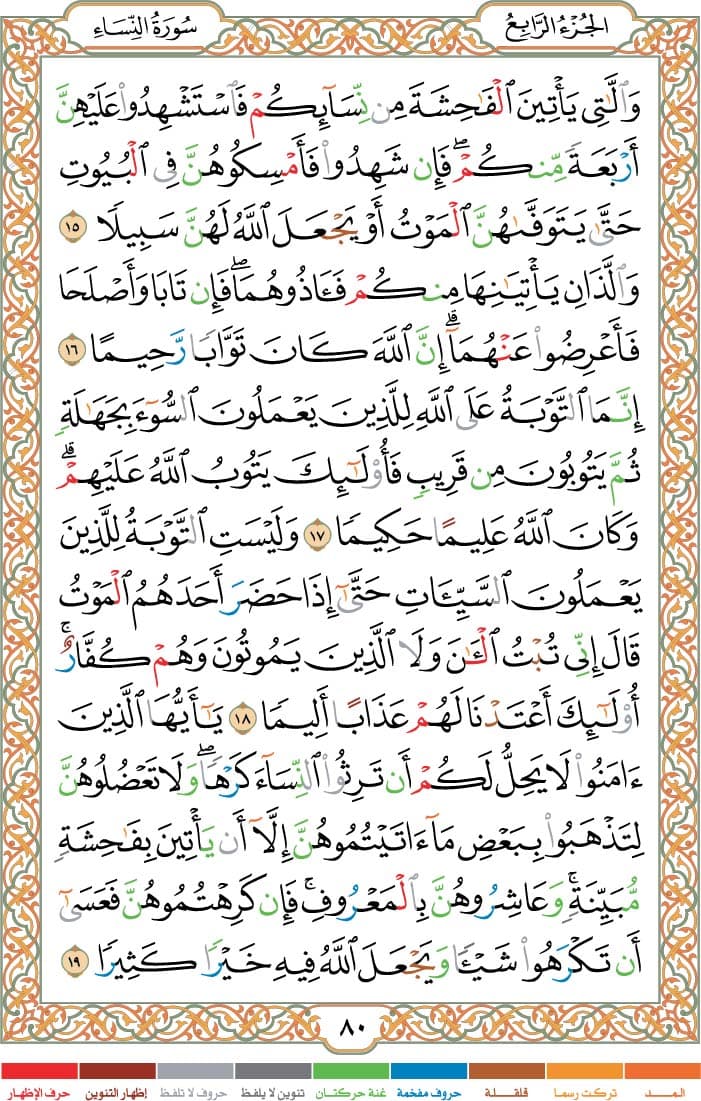 الجُزْءُ الرَّابِعُ
سُورَةُ النِّسَاءِ
وَٱلَّٰتِى يَأْتِينَ ٱلْفَٰحِشَةَ مِن نِّسَآئِكُمْ فَٱسْتَشْهِدُوا۟ عَلَيْهِنَّ
أَرْبَعَةً مِّنكُمْ ۖ فَإِن شَهِدُوا۟ فَأَمْسِكُوهُنَّ فِى ٱلْبُيُوتِ
حَتَّىٰ يَتَوَفَّىٰهُنَّ ٱلْمَوْتُ أَوْ يَجْعَلَ ٱللَّهُ لَهُنَّ سَبِيلًا ١٥
وَٱلَّذَانِ يَأْتِيَٰنِهَا مِنكُمْ فَـَٔاذُوهُمَا ۖ فَإِن تَابَا وَأَصْلَحَا
فَأَعْرِضُوا۟ عَنْهُمَآ ۗ إِنَّ ٱللَّهَ كَانَ تَوَّابًا رَّحِيمًا ١٦
إِنَّمَا ٱلتَّوْبَةُ عَلَى ٱللَّهِ لِلَّذِينَ يَعْمَلُونَ ٱلسُّوٓءَ بِجَهَٰلَةٍ
ثُمَّ يَتُوبُونَ مِن قَرِيبٍ فَأُو۟لَٰٓئِكَ يَتُوبُ ٱللَّهُ عَلَيْهِمْ ۗ
وَكَانَ ٱللَّهُ عَلِيمًا حَكِيمًا ١٧ وَلَيْسَتِ ٱلتَّوْبَةُ لِلَّذِينَ
يَعْمَلُونَ ٱلسَّيِّـَٔاتِ حَتَّىٰٓ إِذَا حَضَرَ أَحَدَهُمُ ٱلْمَوْتُ
قَالَ إِنِّى تُبْتُ ٱلْـَٰٔنَ وَلَا ٱلَّذِينَ يَمُوتُونَ وَهُمْ كُفَّارٌ ۚ
أُو۟لَٰٓئِكَ أَعْتَدْنَا لَهُمْ عَذَابًا أَلِيمًا ١٨ يَٰٓأَيُّهَا ٱلَّذِينَ
ءَامَنُوا۟ لَا يَحِلُّ لَكُمْ أَن تَرِثُوا۟ ٱلنِّسَآءَ كَرْهًا ۖ وَلَا تَعْضُلُوهُنَّ
لِتَذْهَبُوا۟ بِبَعْضِ مَآ ءَاتَيْتُمُوهُنَّ إِلَّآ أَن يَأْتِينَ بِفَٰحِشَةٍ
مُّبَيِّنَةٍ ۚ وَعَاشِرُوهُنَّ بِٱلْمَعْرُوفِ ۚ فَإِن كَرِهْتُمُوهُنَّ فَعَسَىٰٓ
أَن تَكْرَهُوا۟ شَيْـًٔا وَيَجْعَلَ ٱللَّهُ فِيهِ خَيْرًا كَثِيرًا ١٩
٨٠
المـــد تركت رسما قلقـلة حروف مفخمة غنة حركتان تنوين لا يلفظ حروف لا تلفظ إظهار التنوين حرف الإظهار